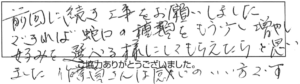 前回に続き工事をお願いしました
できれば蛇口の種類をもう少し増やし
好みを選べる様にしてもらえたらと思い
ました 作業員さんは感じのいい方です
ご協力ありがとうございました。